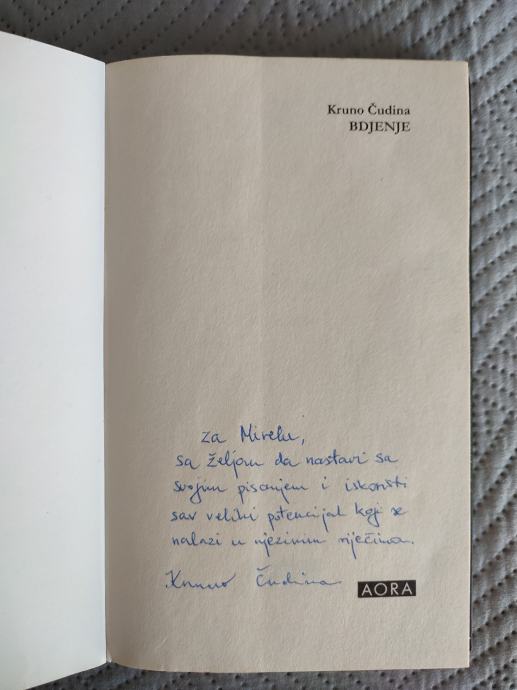 Kruno Čudina
BDJENJE
za Mirelu,
sa željom da nastavi sa
svojim pisanjem i iskoristi
sav veliki potencijal koji se
nalazi u njezinim riječima.
Kruno Čudina
AORA